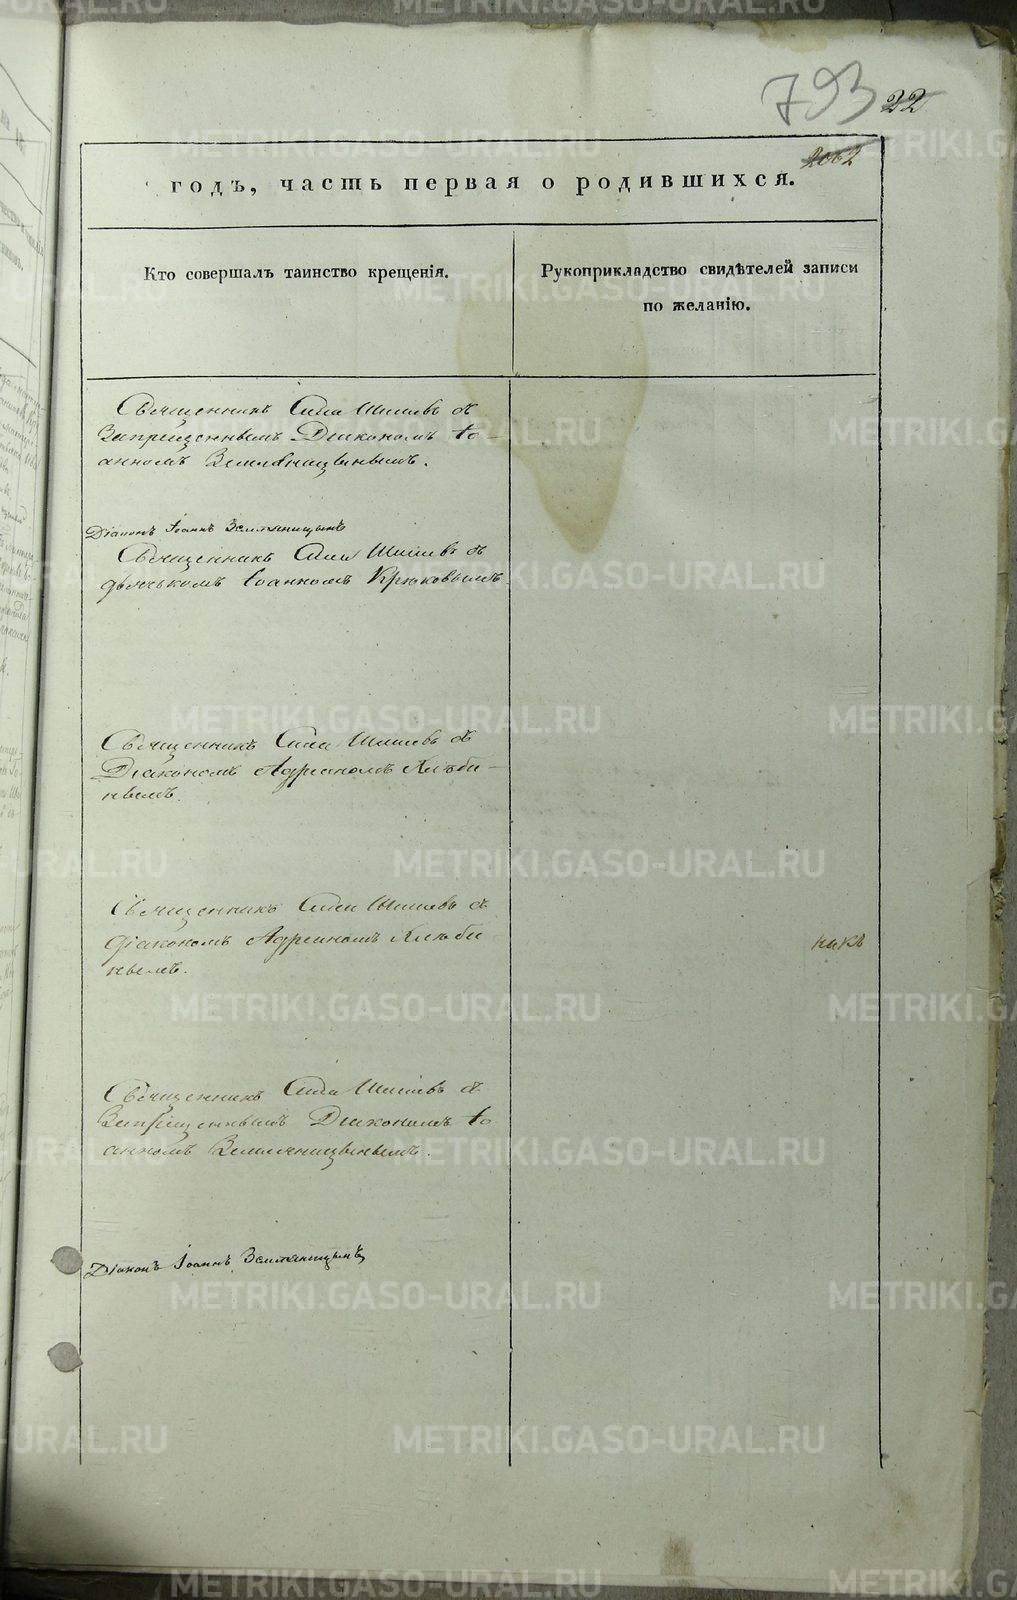 793 22
2062
годъ, часть первая о родившихся.
Кто совершалъ таинство крещенія.
Рукоприкладство свидѣтелей записи
по желанію.
Священникъ Сила Шишевъ съ
Запрещеннымъ Діакономъ Іо-
анномъ Земляницынымъ.
Діаконъ Іоаннъ Земляницынъ
Священникъ Сила Шишевъ съ
дьячькомъ Іоанномъ Крюковымъ
Священникъ Сила Шишевъ съ
Діакономъ Адрианомъ Хлѣби-
нымъ.
Священникъ Сила Шишевъ съ
діакономъ Адрианомъ Хлѣби
нымъ.
Священникъ Сила Шишевъ съ
Запрещеннымъ Діакономъ Іо
анномъ Земляницынымъ.
Діаконъ Іоаннъ Земляницынъ
METRIKI.GASO-URAL.RU